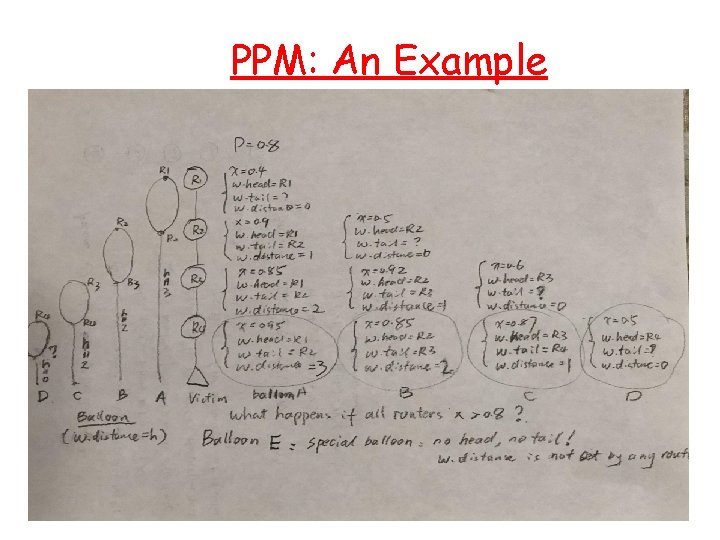 PPM: An Example
P=0.8
R1
R1
x=0.4
w.head=R1
w.tail=?
w.distance=0
R2
R2
R2
x=0.9
w.head=R1
w.tail=R2
w.distance=1
x=0.5
w.head=R2
w.tail=?
w.distance=0
R3
R3
x=0.85
w.head=R1
w.tail=R2
w.distance=2
x=0.92
w.head=R2
w.tail=R3
w.distance=1
x=0.6
w.head=R3
w.tail=?
w.distance=0
R4
R4
R4
x=0.95
w.head=R1
w.tail=R2
w.distance=3
x=0.85
w.head=R2
w.tail=R3
w.distance=2
x=0.87
w.head=R3
w.tail=R4
w.distance=1
x=0.5
w.head=R4
w.tail=?
w.distance=0
D C B A Victim balloon A B C D
Balloon
(w.distance=h)
what happens if all routers x>0.8 ?
Balloon E = special balloon: no head, no tail!
w.distance is not set by any